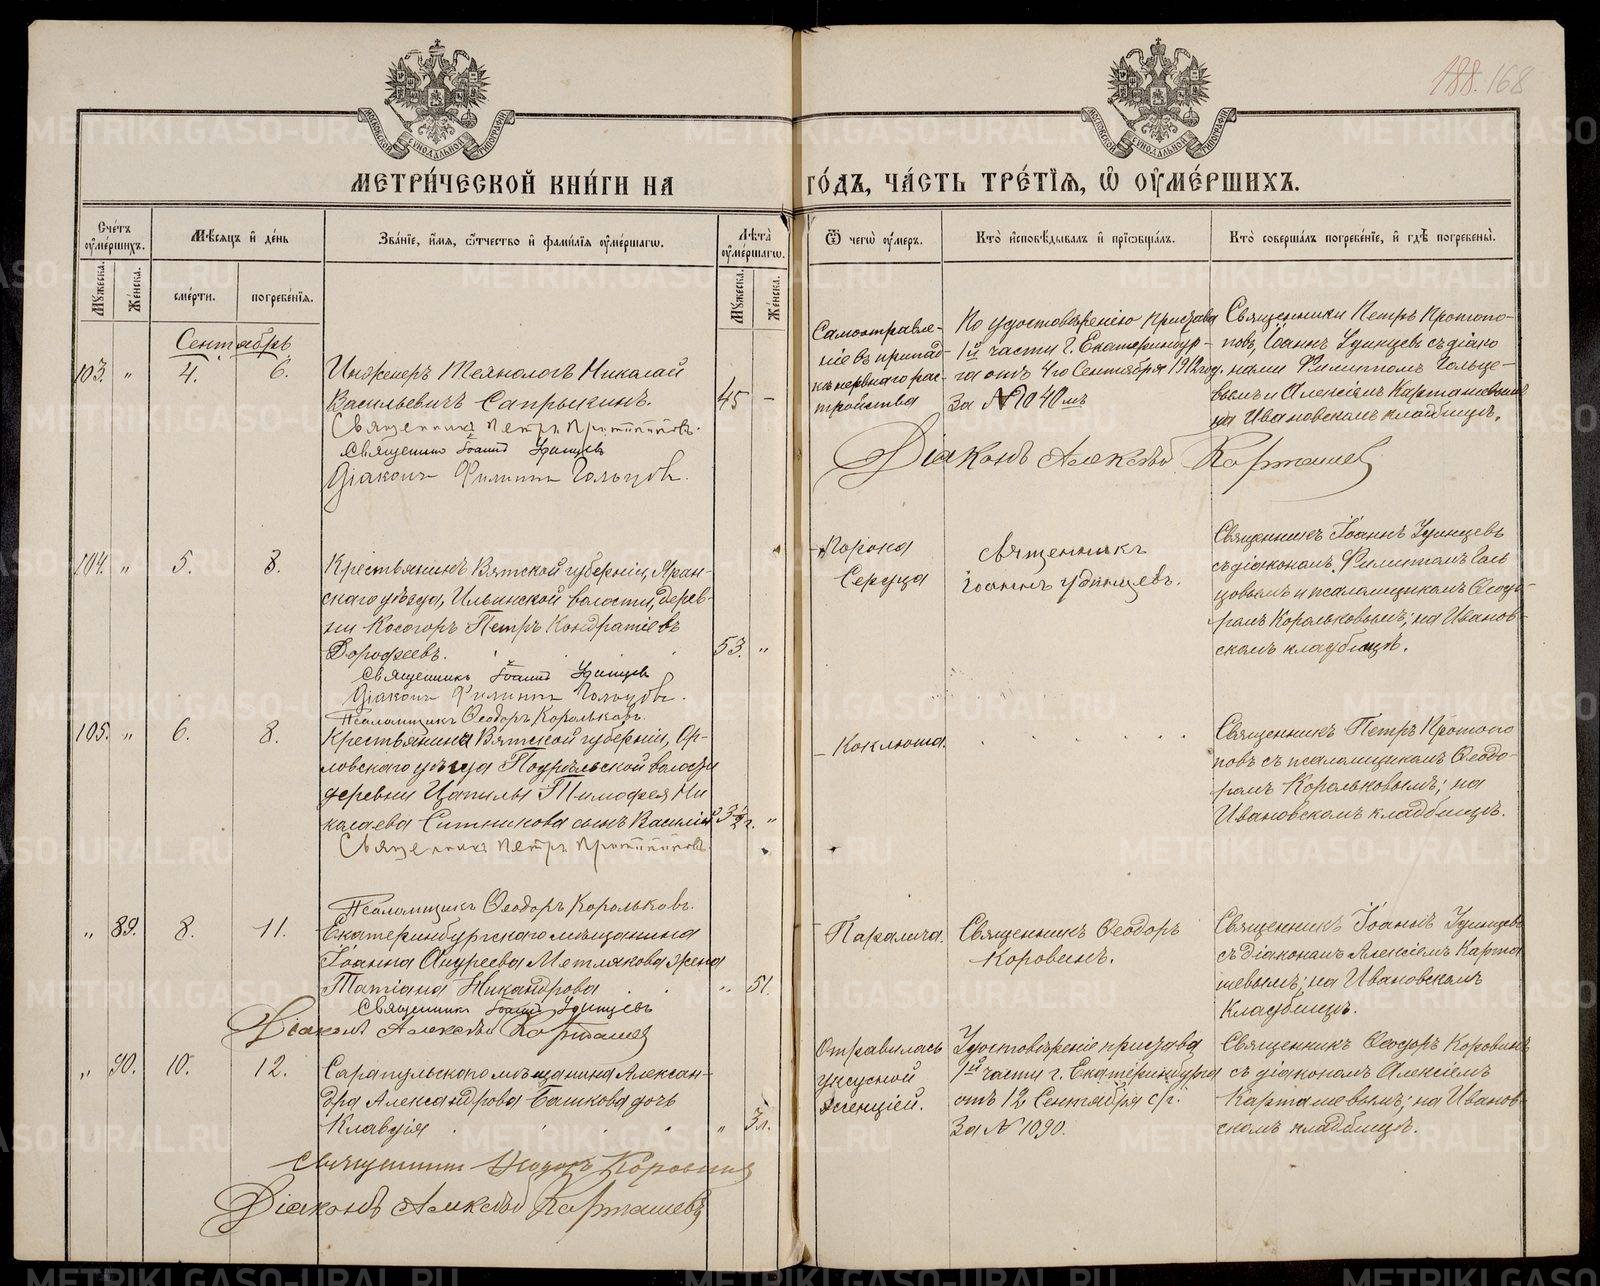 188. 168
МОСКОВСКОЙ СѴНОДАЛЬНОЙ ТИПОГРАФІИ
МОСКОВСКОЙ СѴНОДАЛЬНОЙ ТИПОГРАФІИ
МЕТРИ́ЧЕСКОЙ КНИ́ГИ НА ГО́ДЪ, ЧА́СТЬ ТРЕ́ТІЯ, Ѡ ОУМЕ́РШИХЪ.
Сче́тъ оуме́ршихъ.
Мѣ́сяцъ и де́нь
Зва́ніе, и́мя, ѻ́тчество и фами́лія оуме́ршагѡ.
Лѣ́та оуме́ршагѡ.
Ѿ чегѡ̀ оу́меръ.
Кто̀ исповѣ́дывалъ и пріѡбща́лъ.
Кто̀ соверша́лъ погребе́ніе, и гдѣ̀ погребены̀.
Му́жеска.
Же́нска.
сме́рти.
погребе́нія.
Му́жеска.
Же́нска.
Сентябрь
103. „ 4. 6.
Инженеръ Технологъ Николай
Васильевичъ Сапрыкинъ.
45 –
Священникъ Петръ Протопоповъ.
Священникъ Іоаннъ Удинцевъ
Діаконъ Филиппъ Гольцовъ.
Самоотравле-
ніе въ припад-
кѣ нервнаго раз-
тройства
По удостовѣренію Пристава
1й части г. Екатеринбур-
га отъ 4го Сентября 1912 год.
За № 1040мъ
Священники Петръ Протопо-
повъ, Іоаннъ Удинцевъ съ діако
нами Филиппомъ Гольце-
вымъ и Алексіемъ Карташевымъ
на Ивановскомъ кладбищѣ.
Діаконъ Алексѣй Карташев
104. „ 5. 8.
Крестьянинъ Вятской губерніи, Яран-
скаго уѣзда, Ильинской волости, дерев-
ни Косогоръ Петръ Кондратіевъ
Дорофеевъ.
53. „
Священникъ Іоаннъ Удинцев
Діаконъ Филиппъ Гольцовъ.
Псаломщикъ Ѳеодоръ Корольковъ.
Порока
Сердца
Священникъ
Іоаннъ Удинцевъ.
Священникъ Іоаннъ Удинцевъ
съ діакономъ Филиппомъ Голь
цовымъ и псаломщикомъ Ѳеодо-
ромъ Корольковымъ; на Иванов-
скомъ кладбищѣ.
105. „ 6. 8.
Крестьянина Вятской губерніи, Ор-
ловскаго уѣзда Подрельской волости
деревни Цапилы Тимофея Ни
колаева Ситникова сынъ Василій
3½ г. „
Священникъ Петръ Протопоповъ
Псаломщикъ Ѳеодоръ Корольковъ.
Коклюша.
Священникъ Петръ Протопо
повъ съ псаломщикомъ Ѳеодо-
ромъ Корольковымъ; на
Ивановскомъ кладбищѣ.
„ 89. 8. 11.
Екатеринбургскаго мѣщанина
Іоанна Андреева Метлякова жена
Татіана Никандрова
„ 51.
Священникъ Іоаннъ Удинцевъ
Діаконъ Алексѣй Карташев
Паралича.
Священникъ Ѳеодоръ
Коровинъ.
Священникъ Іоаннъ Удинцевъ
съ діакономъ Алексіемъ Карта
шевымъ; на Ивановскомъ
Кладбищѣ.
„ 90. 10. 12.
Сарапульскаго мѣщанина Алексан-
дра Александрова Башкова дочь
Клавдія
„ 3 л.
Священникъ Ѳеодоръ Коровинъ
Діаконъ Алексѣй Карташевъ
Отравилась
уксусной
эссенціей.
Удостовѣреніе пристава
1й части г. Екатеринбурга
отъ 12 Сентября с/г.
За № 1090.
Священникъ Ѳеодоръ Коровинъ
съ діакономъ Алексіемъ
Карташевымъ; на Иванов-
скомъ кладбищѣ.
METRIKI.GASO-URAL.RU